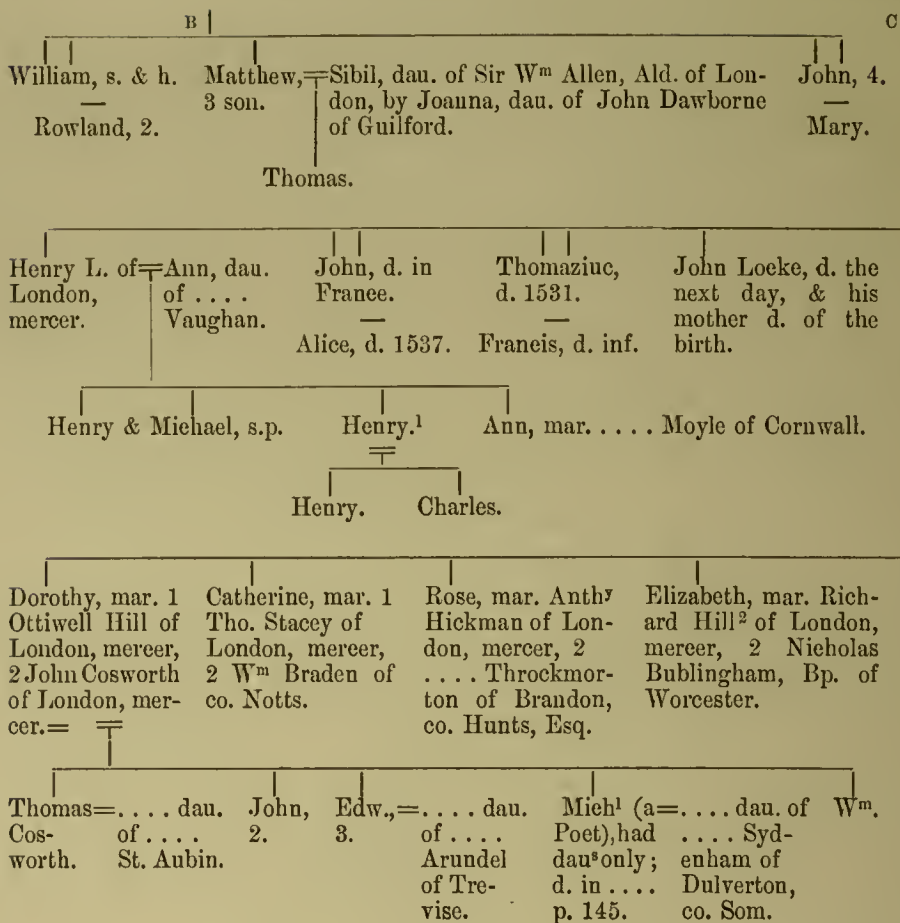 B C
William, s. & h.
—
Rowland, 2.
Matthew,
3 son.
Sibil, dau. of Sir Wᵐ Allen, Ald. of Lon-
don, by Joanna, dau. of John Dawborne
of Guilford.
John, 4.
—
Mary.
Thomas.
Henry L. of
London,
mercer.
Ann, dau.
of . . . .
Vaughan.
John, d. in
France.
—
Alice, d. 1537.
Thomaziuc,
d. 1531.
—
Francis, d. inf.
John Locke, d. the
next day, & his
mother d. of the
birth.
Henry & Michael, s.p.
Henry.¹
Ann, mar. . . . . Moyle of Cornwall.
Henry.
Charles.
Dorothy, mar. 1
Ottiwell Hill of
London, mercer,
2 John Cosworth
of London, mer-
cer.=
Catherine, mar. 1
Tho. Stacey of
London, mercer,
2 Wᵐ Braden of
co. Notts.
Rose, mar. Anthʸ
Hickman of Lon-
don, mercer, 2
. . . . Throckmor-
ton of Brandon,
co. Hunts, Esq.
Elizabeth, mar. Rich-
ard Hill² of London,
mercer, 2 Nicholas
Bublingham, Bp. of
Worcester.
Thomas=. . . . dau.
Cos- of . . . .
worth. St. Aubin.
John,
2.
Edw.,=. . . . dau.
3. of . . . .
Arundel
of Tre-
vise.
Michˡ (a=. . . . dau. of
Poet), had . . . . Syd-
dauˢ only; enham of
d. in . . . . Dulverton,
p. 145. co. Som.
Wᵐ.